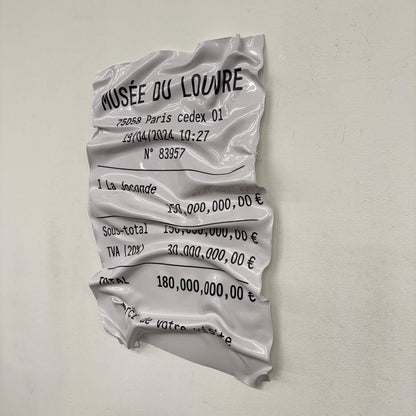 MUSÉE DU LOUVRE
75058 Paris cedex 01
19/04/2024 10:27
N° 83957
1 La Joconde
150,000,000,00 €
Sous-total 150,000,000,00 €
TVA (20%) 30,000,000,00 €
TOTAL 180,000,000,00 €
de votre visite